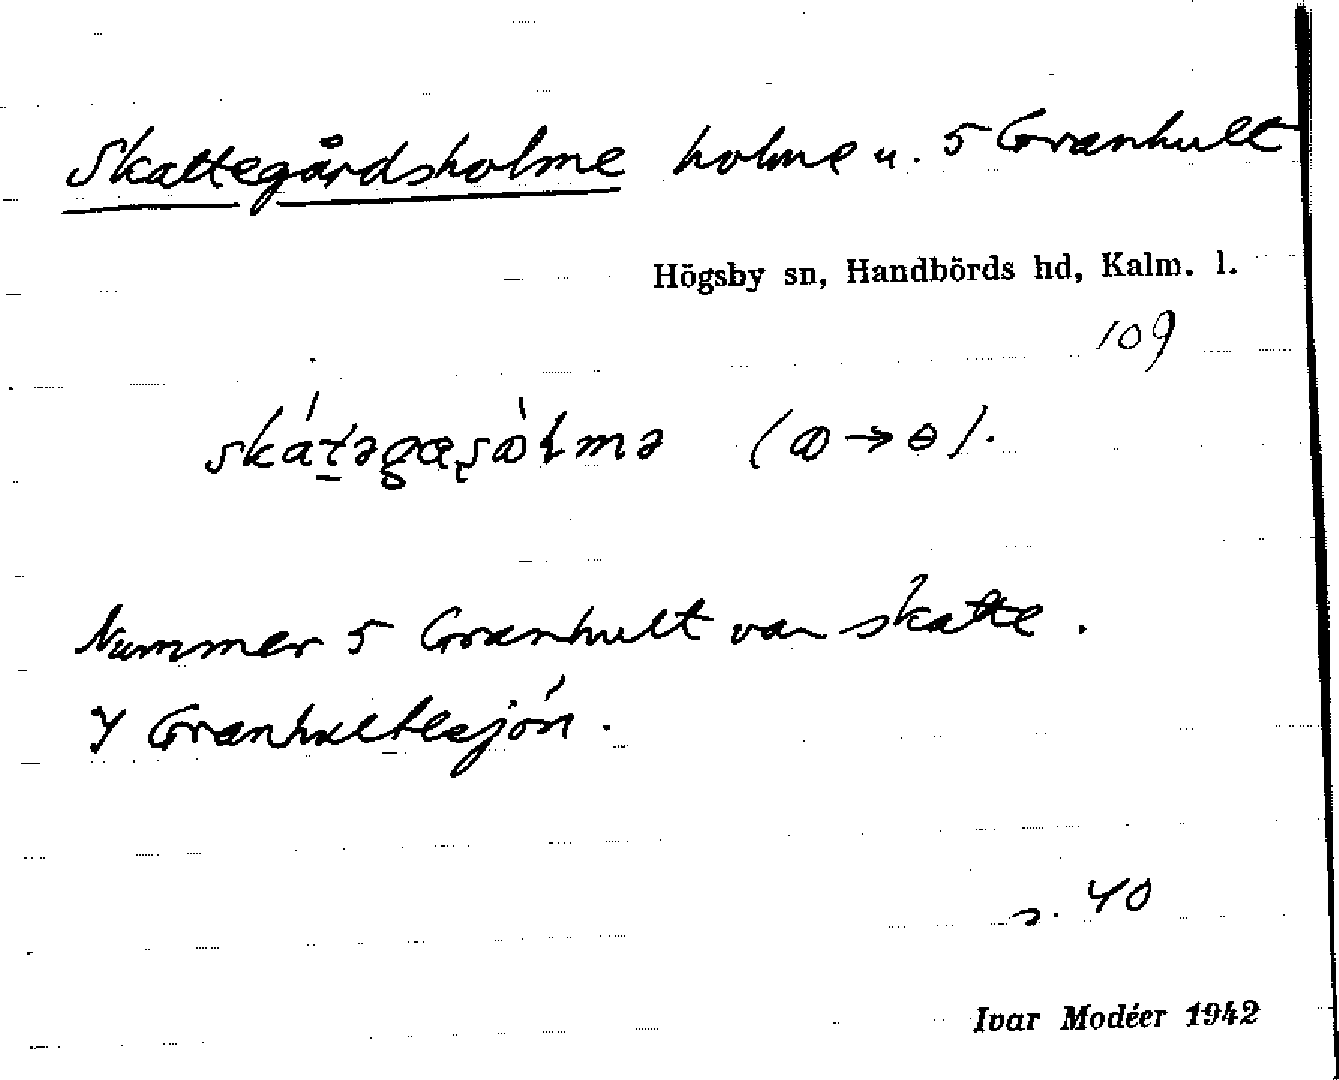 Skattegårdsholme holme u. 5 Granhult
Högsby sn, Handbörds hd, Kalm. l.
109
Nummer 5 Granhult var skatte.
Y Granhultesjön.
s. 40
Ivar Modéer 1942